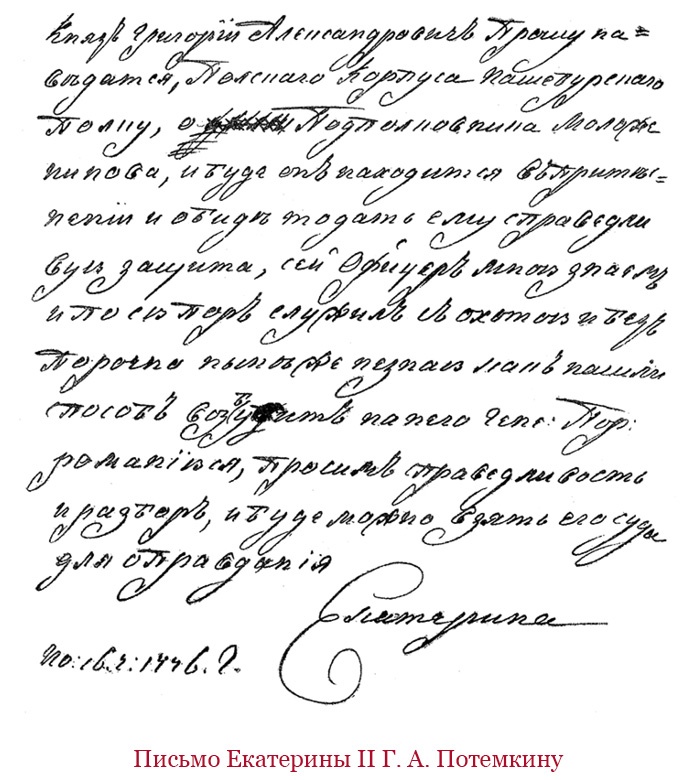 Князь Григорій Александровичь Прошу на=
вѣдатся, Полскаго Корпуса Нашебурскаго
Полку, о Подполковника Моложе
нинова, и буде онъ находится въ притѣс=
неніи и обидѣ то дать ему справедли
вую защита, сей Офицеръ мною знаемъ
и по сю поръ служилъ съ охотою и безъ
Порочно нынѣ же незнаю какъ нашли
способъ возбудить на него Гене: Пор:
романіюся, просимъ праведливость
и разборъ, и буде можно взять его суда
для оправданія
Екатерина
Но: 16. ч: 1776. Г.
Письмо Екатерины II Г. А. Потемкину